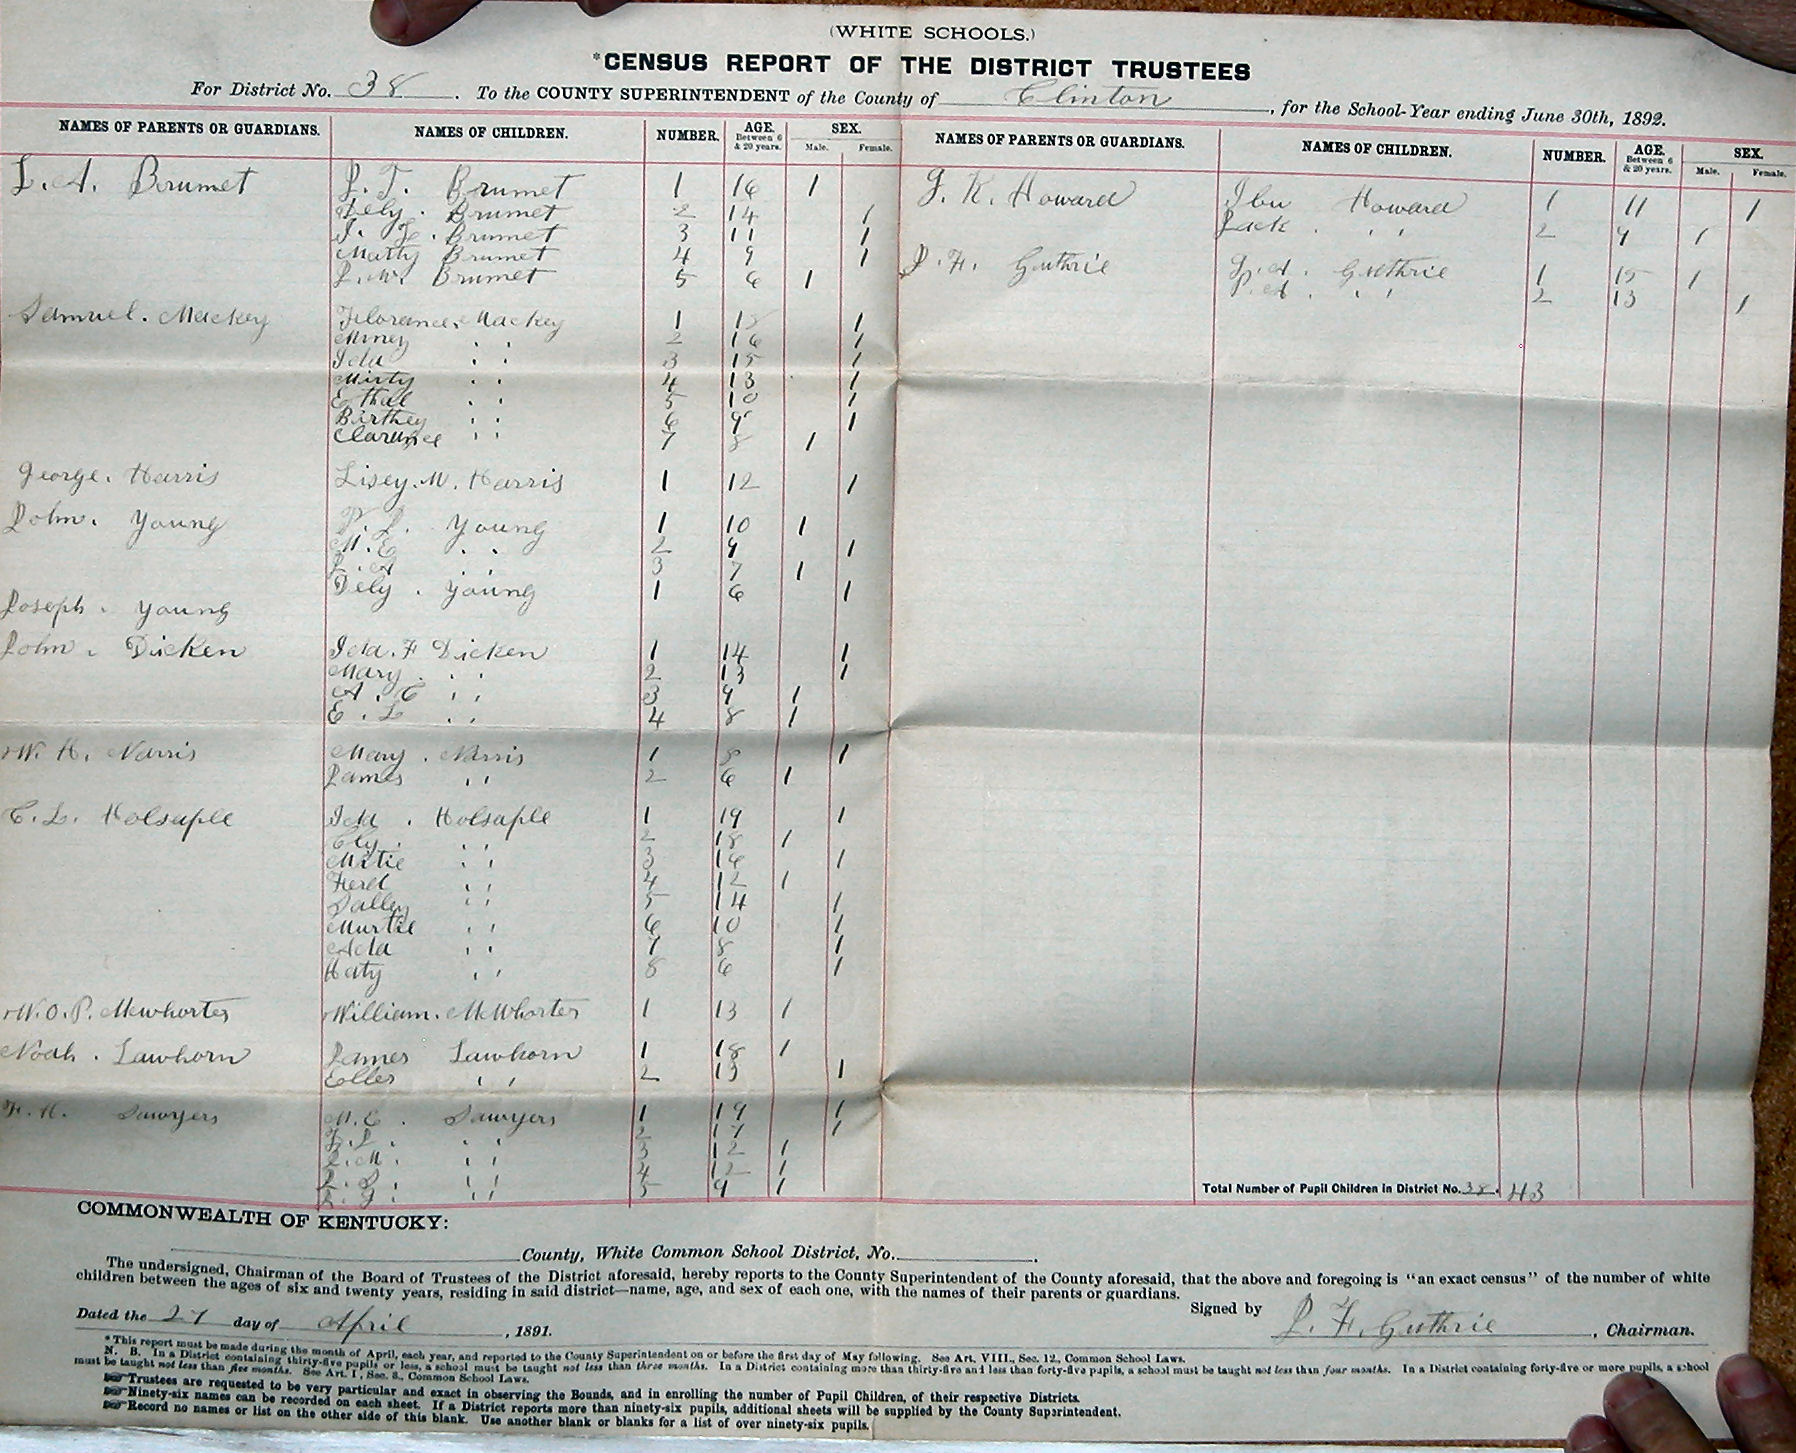 (WHITE SCHOOLS.)
*CENSUS REPORT OF THE DISTRICT TRUSTEES
For District No. 38. To the COUNTY SUPERINTENDENT of the County of Clinton, for the School-Year ending June 30th, 1892.
NAMES OF PARENTS OR GUARDIANS. NAMES OF CHILDREN. NUMBER. AGE. Between 6 & 20 years. SEX. Male. Female.
L. A. Brumet J. T. Brumet 1 16 1
Dely. Brumet 2 14 1
Brumet 3 11 1
Matty Brumet 4 9 1
Brumet 5 6 1
Samuel. Mackey Florance. Mackey 1 18 1
Miney " 2 16 1
Ida " 3 15 1
Mirty " 4 13 1
Ethal " 5 10 1
Birthey " 6 9 1
Clarunce " 7 8 1
George. Harris Lisey. M. Harris 1 12 1
John. Young Young 1 10 1
M. E " 2 9 1
J. A " 3 7 1
Joseph. Young Dely. Young 1 6 1
John. Dicken Ida. F Dicken 1 14 1
Mary " 2 13 1
A. C " 3 9 1
E. L " 4 8 1
W. H. Narris Mary. Narris 1 8 1
James " 2 6 1
C. L. Holsaple Ida. Holsaple 1 19 1
Ely. " 2 18 1
Mitie " 3 16 1
Ferd " 4 12 1
Salley " 5 14 1
Murtie " 6 10 1
Ada " 7 8 1
Haty " 8 6 1
W. O. P. Mcwhorter William. McWhorter 1 13 1
Noah. Lawhorn James Lawhorn 1 18 1
Eller " 2 13 1
F. H. Sawyers M. E. Sawyers 1 19 1
" 2 17 1
" 3 12 1
" 4 12 1
" 5 9 1
NAMES OF PARENTS OR GUARDIANS. NAMES OF CHILDREN. NUMBER. AGE. Between 6 & 20 years. SEX. Male. Female.
J. K. Howard Ibu Howard 1 11 1
Jack. " 2 9 1
J. F. Guthrie Guthrie 1 15 1
" 2 13 1
Total Number of Pupil Children in District No. 38. 43
COMMONWEALTH OF KENTUCKY:
County, White Common School District, No.
The undersigned, Chairman of the Board of Trustees of the District aforesaid, hereby reports to the County Superintendent of the County aforesaid, that the above and foregoing is "an exact census" of the number of white
children between the ages of six and twenty years, residing in said district—name, age, and sex of each one, with the names of their parents or guardians.
Signed by J. F. Guthrie, Chairman.
Dated the 27 day of April, 1891.
*This report must be made during the month of April, each year, and reported to the County Superintendent on or before the first day of May following. See Art. VIII., Sec. 12., Common School Laws.
N. B. In a District containing thirty-five pupils or less, a school must be taught not less than three months. In a District containing more than thirty-five and less than forty-five pupils, a school must be taught not less than four months. In a District containing forty-five or more pupils, a school
must be taught not less than five months. See Art. I, Sec. 8., Common School Laws.
☞Trustees are requested to be very particular and exact in observing the Bounds, and in enrolling the number of Pupil Children, of their respective Districts.
☞Ninety-six names can be recorded on each sheet. If a District reports more than ninety-six pupils, additional sheets will be supplied by the County Superintendent.
☞Record no names or list on the other side of this blank. Use another blank or blanks for a list of over ninety-six pupils.